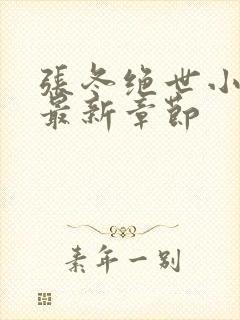 張冬绝世小
最新章節
素年一别